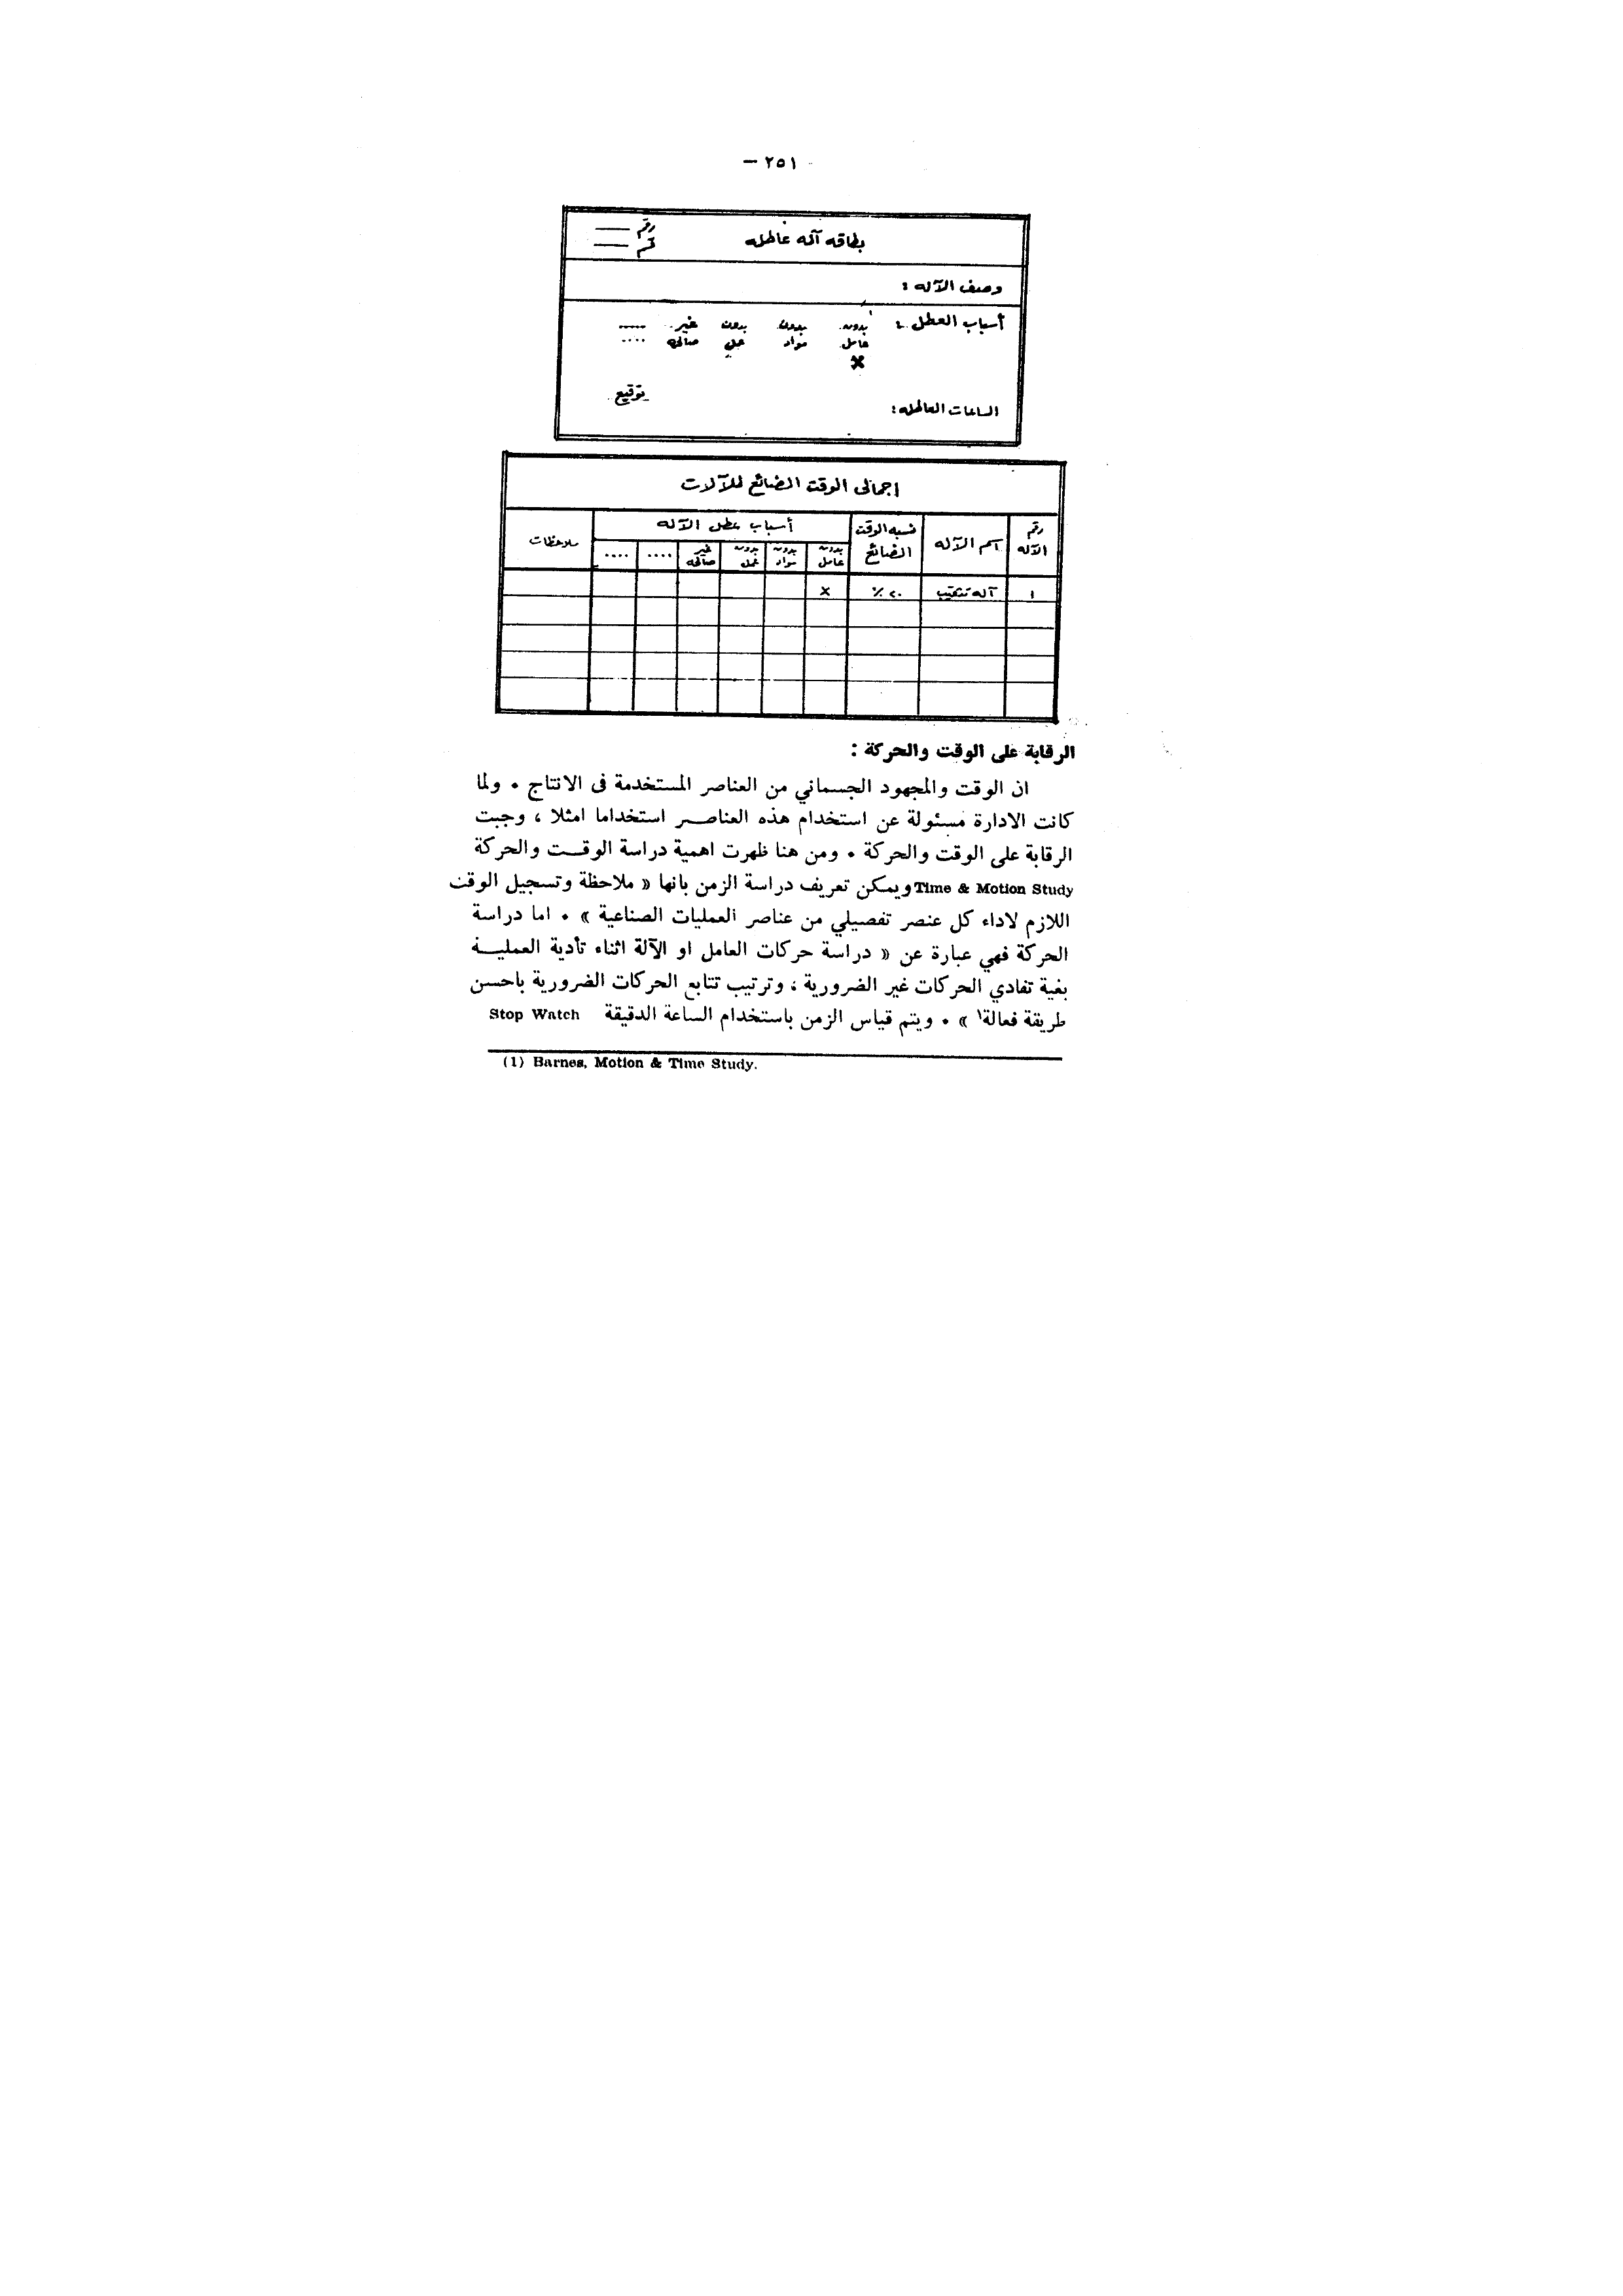 ٢٥١ —
بطاقه آله عاطله
رقم
قسم
وصف الآله :
أسباب العطل :
بدون عامل بدون مواد بدون عمل غير صالحه ..... ....
x
الساعات العاطله : توقيع
اجمالى الوقت الضائع للآلات
رقم الآله اسم الآله نسبه الوقت الضائع أسباب عطل الآله ملاحظات
بدون عامل بدون مواد بدون عمل غير صالحه .... ....
١ آله تثقيب ٢٠ ٪ x
الرقابة على الوقت والحركة :
ان الوقت والمجهود الجسماني من العناصر المستخدمة فى الانتاج . ولما
كانت الادارة مسئولة عن استخدام هذه العناصر استخداما امثلا ، وجبت
الرقابة على الوقت والحركة . ومن هنا ظهرت اهمية دراسة الوقت والحركة
Time & Motion Study ويمكن تعريف دراسة الزمن بانها « ملاحظة وتسجيل الوقت
اللازم لاداء كل عنصر تفصيلي من عناصر العمليات الصناعية » . اما دراسة
الحركة فهي عبارة عن « دراسة حركات العامل او الآلة اثناء تأدية العملية
بغية تفادي الحركات غير الضرورية ، وترتيب تتابع الحركات الضرورية باحسن
طريقة فعالة١ » . ويتم قياس الزمن باستخدام الساعة الدقيقة Stop Watch
(1) Barnes, Motion & Time Study.